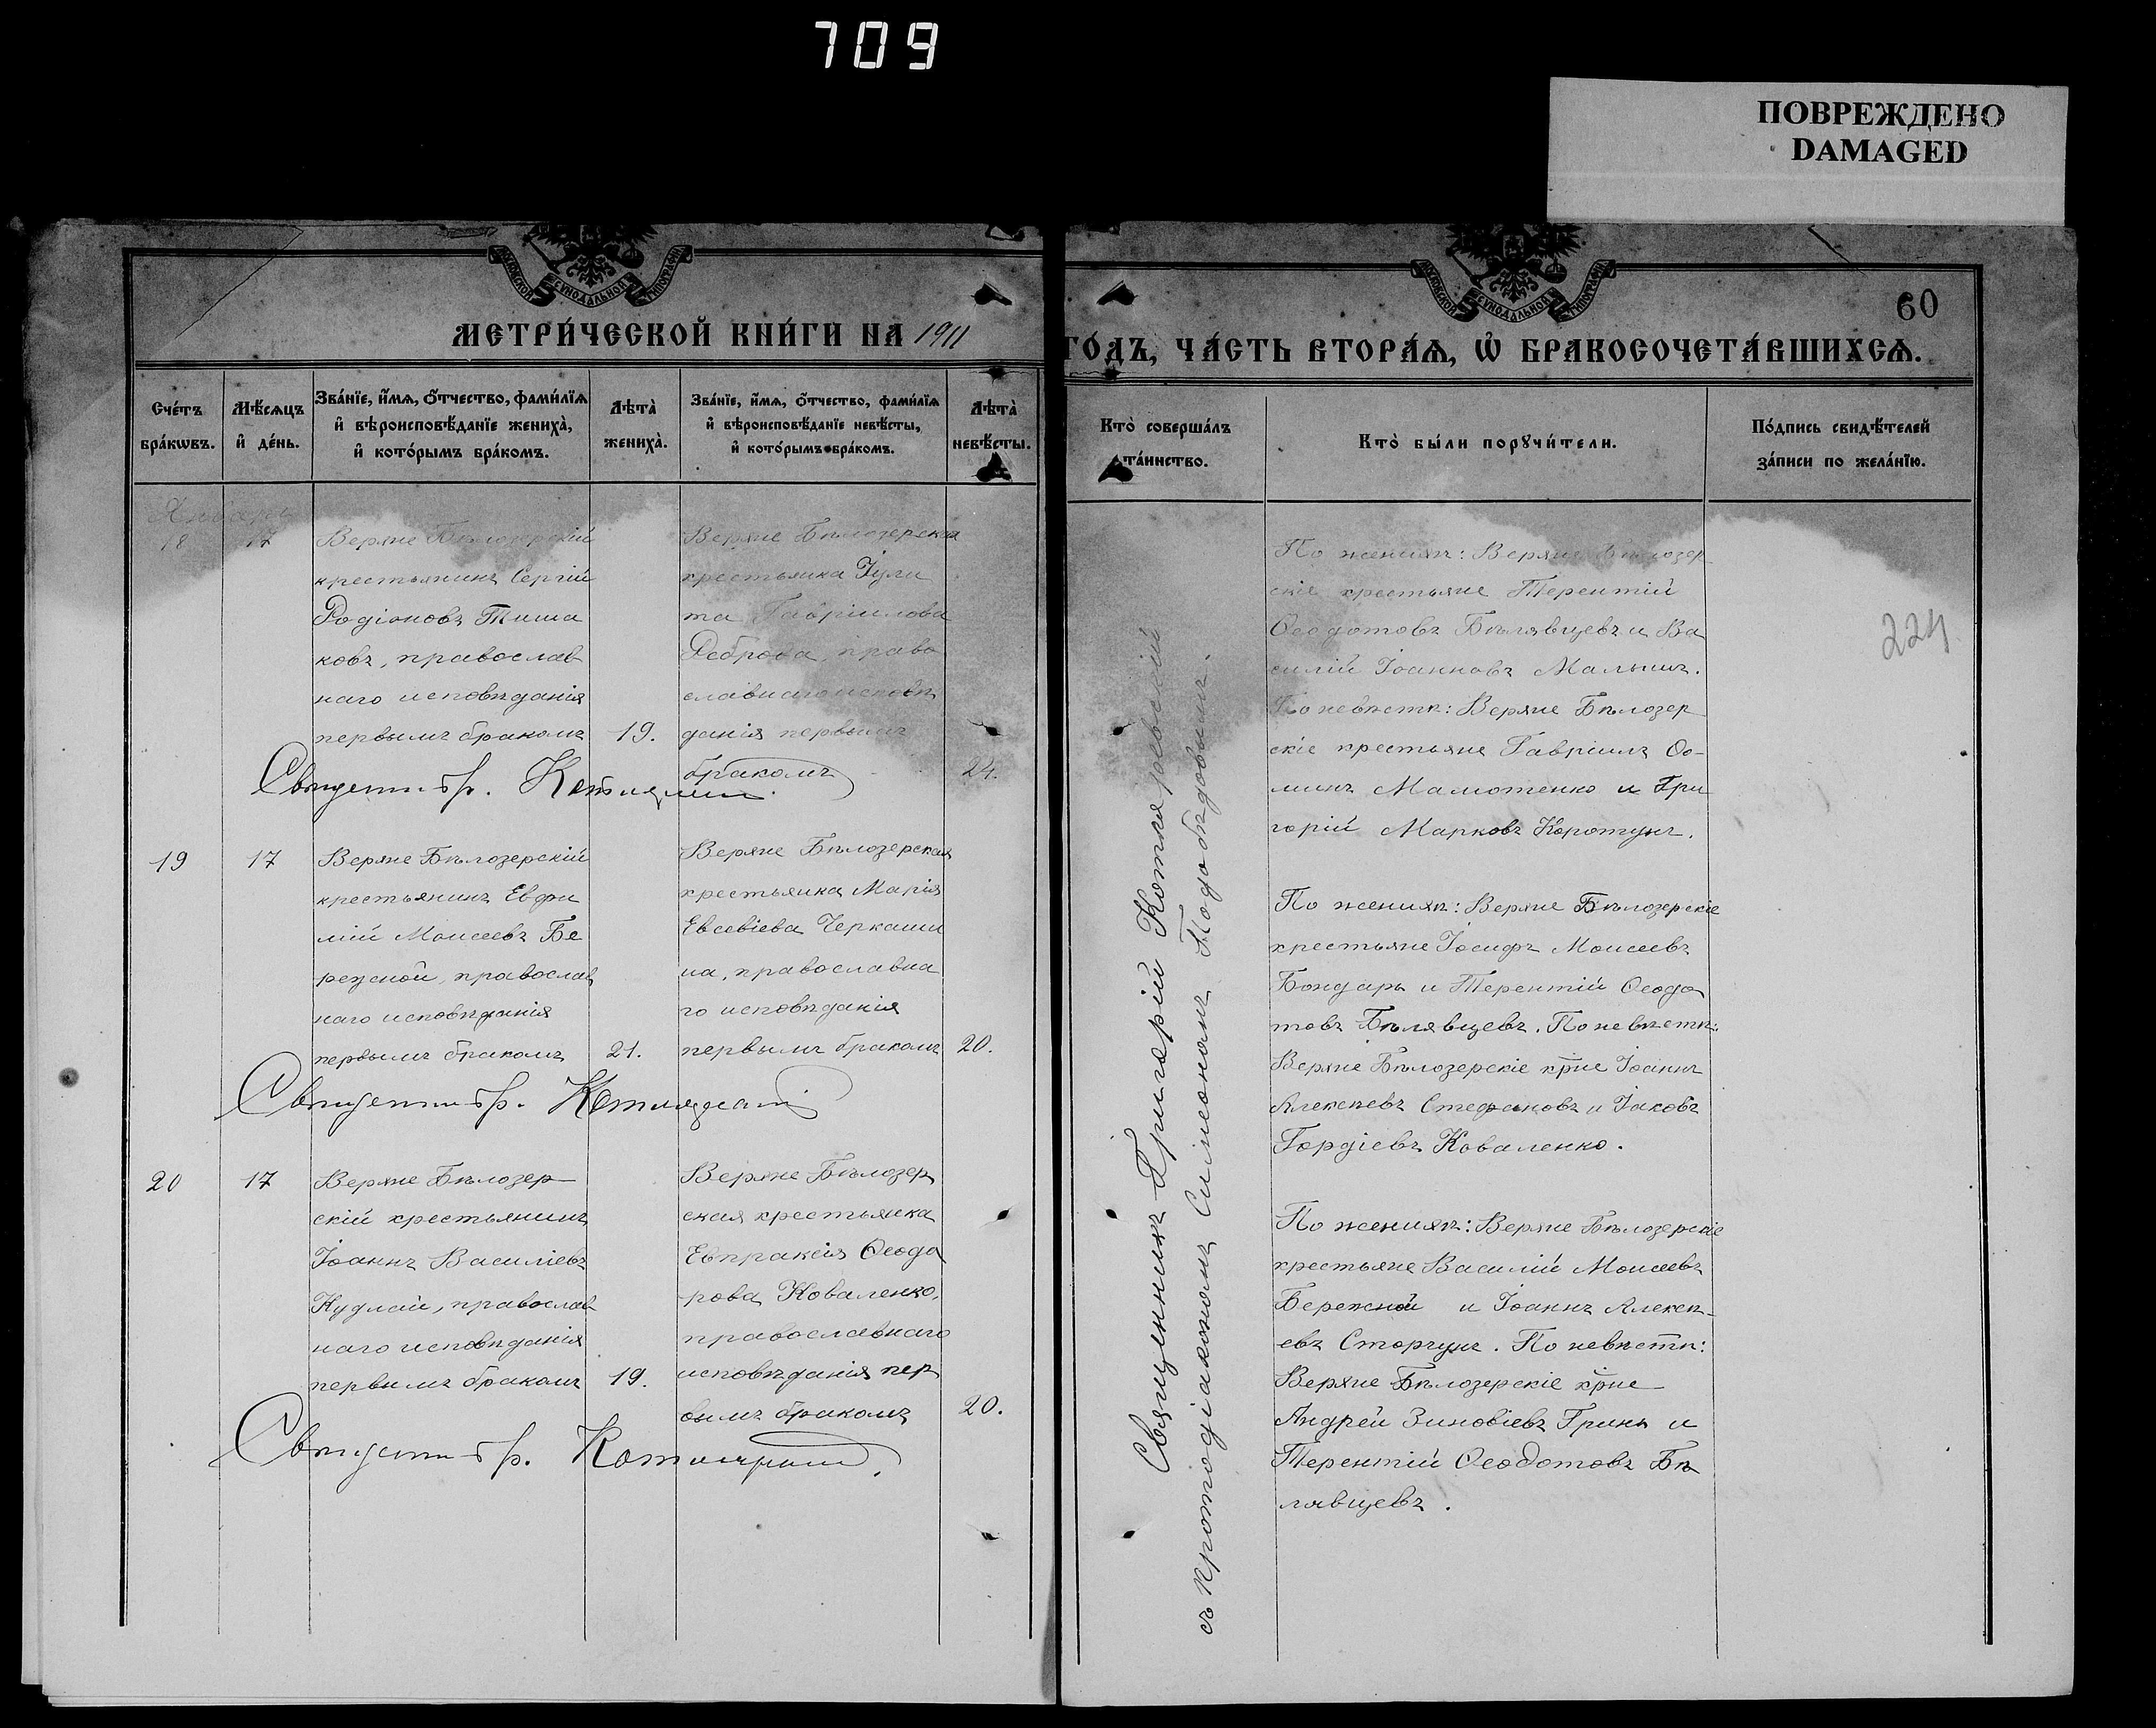 709
ПОВРЕЖДЕНО
DAMAGED
МОСКОВСКОЙ СѴНОДАЛЬНОЙ ТИПОГРАФІИ
МЕТРИ́ЧЕСКОЙ КНИ́ГИ НА 1911
Сче́тъ бра́кѡвъ.
Мѣ́сѧцъ и҆ де́нь.
Зва́нїе, и҆́мѧ, ѻ҆́тчество, фами́лїѧ
и҆ вѣроисповѣ́данїе жениха̀,
и҆ кото́рымъ бра́комъ.
Лѣта̀ жениха̀.
Зва́нїе, и҆́мѧ, ѻ҆́тчество, фами́лїѧ
и҆ вѣроисповѣ́данїе невѣ́сты,
и҆ кото́рымъ бра́комъ.
Лѣта̀ невѣ́сты.
Январь
18
17
Верхне Бѣлозерскій
крестьянинъ Сергій
Родіоновъ Тиша
ковъ, православ
наго исповѣданія
первымъ бракомъ
19.
Верхне Бѣлозерская
крестьянка Іули
та Гавріилова
Реброва, право
славнаго исповѣ
данія первымъ
бракомъ
24.
19
17
Верхне Бѣлозерскій
крестьянинъ Евфи
мій Моисеевъ Бе
режной, православ
наго исповѣданія
первымъ бракомъ
21.
Верхне Бѣлозерская
крестьянка Марія
Евсевіева Черкаши
на, православна
го исповѣданія
первымъ бракомъ
20.
20
17
Верхне Бѣлозер
скій крестьянинъ
Іоаннъ Василіевъ
Кудлай, православ
наго исповѣданія
первымъ бракомъ
19.
Верхне Бѣлозер
ская крестьянка
Евпраксія Ѳеодо
рова Коваленко,
православнаго
исповѣданія пер
вымъ бракомъ
20.
МОСКОВСКОЙ СѴНОДАЛЬНОЙ ТИПОГРАФІИ
60
ГО́ДЪ, ЧА́СТЬ ВТОРА́Ѧ, Ѡ҆ БРАКОСОЧЕТА́ВШИХСѦ.
Кто̀ соверша́лъ
та́инство.
Кто̀ бы́ли порꙋчи́тели.
По́дпись свидѣ́телей
за́писи по жела́нїю.
224
Священникъ Григорій
съ протодіакономъ Симеономъ
По женихѣ: Верхне Бѣлозер
скіе крестьяне Терентій
Ѳеодотовъ Бѣлявцевъ и Ва
силій Іоанновъ Малышъ.
По невѣстѣ: Верхне Бѣлозер
скіе крестьяне Гавріилъ Ѳо-
минъ Мамотенко и Гри
горій Марковъ Коротунъ.
По женихѣ: Верхне Бѣлозерскіе
крестьяне Іосифъ Моисеевъ
Бондарь и Терентій Ѳеодо
товъ Бѣлявцевъ. По невѣстѣ:
Верхне Бѣлозерскіе кр̃не Іоаннъ
Алексѣевъ Стефановъ и Іаковъ
Гордіевъ Коваленко.
По женихѣ: Верхне Бѣлозерскіе
крестьяне Василій Моисеевъ
Бережной и Іоаннъ Алексѣ-
евъ Сторчунъ. По невѣстѣ:
Верхне Бѣлозерскіе кр̃не
Андрей Зиновіевъ Гринь и
Терентій Ѳеодотовъ Бѣ
лявцевъ.